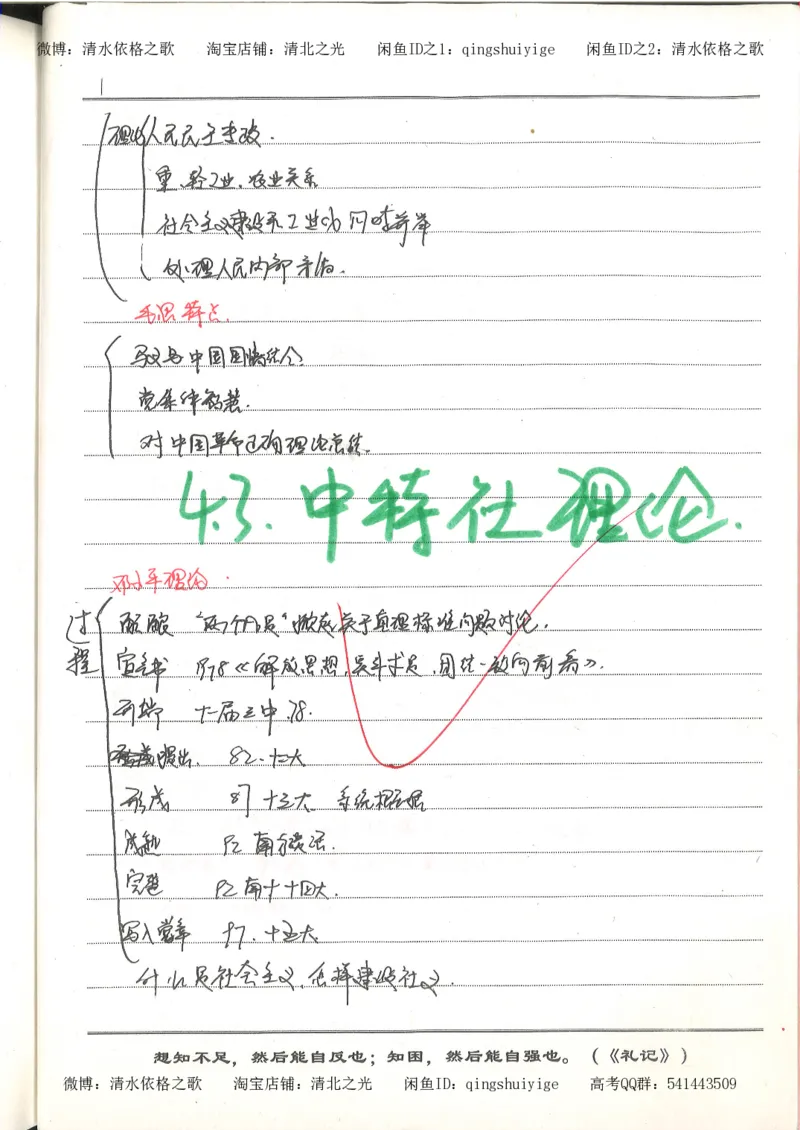 微博：清水依格之歌 淘宝店铺：清北之光 闲鱼ID之1：qingshuiyige 闲鱼ID之2：清水依格之歌
理论 人民民主专政.
重、轻工业、农业关系
社会主义建设和工业化同时并举
处理人民内部矛盾.
毛思特点.
马义与中国国情结合.
党集体智慧.
对中国革命已有理论总结.
4.3.中特社理论.
邓小平理论.
过程
酝酿 "两个凡是" 关于真理标准问题讨论.
宣言书 1978《解放思想,实事求是,团结一致向前看》.
开端 十一届三中.78.
提出. 82.十二大
形成 87 十三大 系统
成熟 92 南方谈话.
完整 92 十四大.
写入党章 97.十五大
什么是社会主义,怎样建设社义.
想知不足，然后能自反也；知困，然后能自强也。（《礼记》）
微博：清水依格之歌 淘宝店铺：清北之光 闲鱼ID：qingshuiyige 高考QQ群：541443509